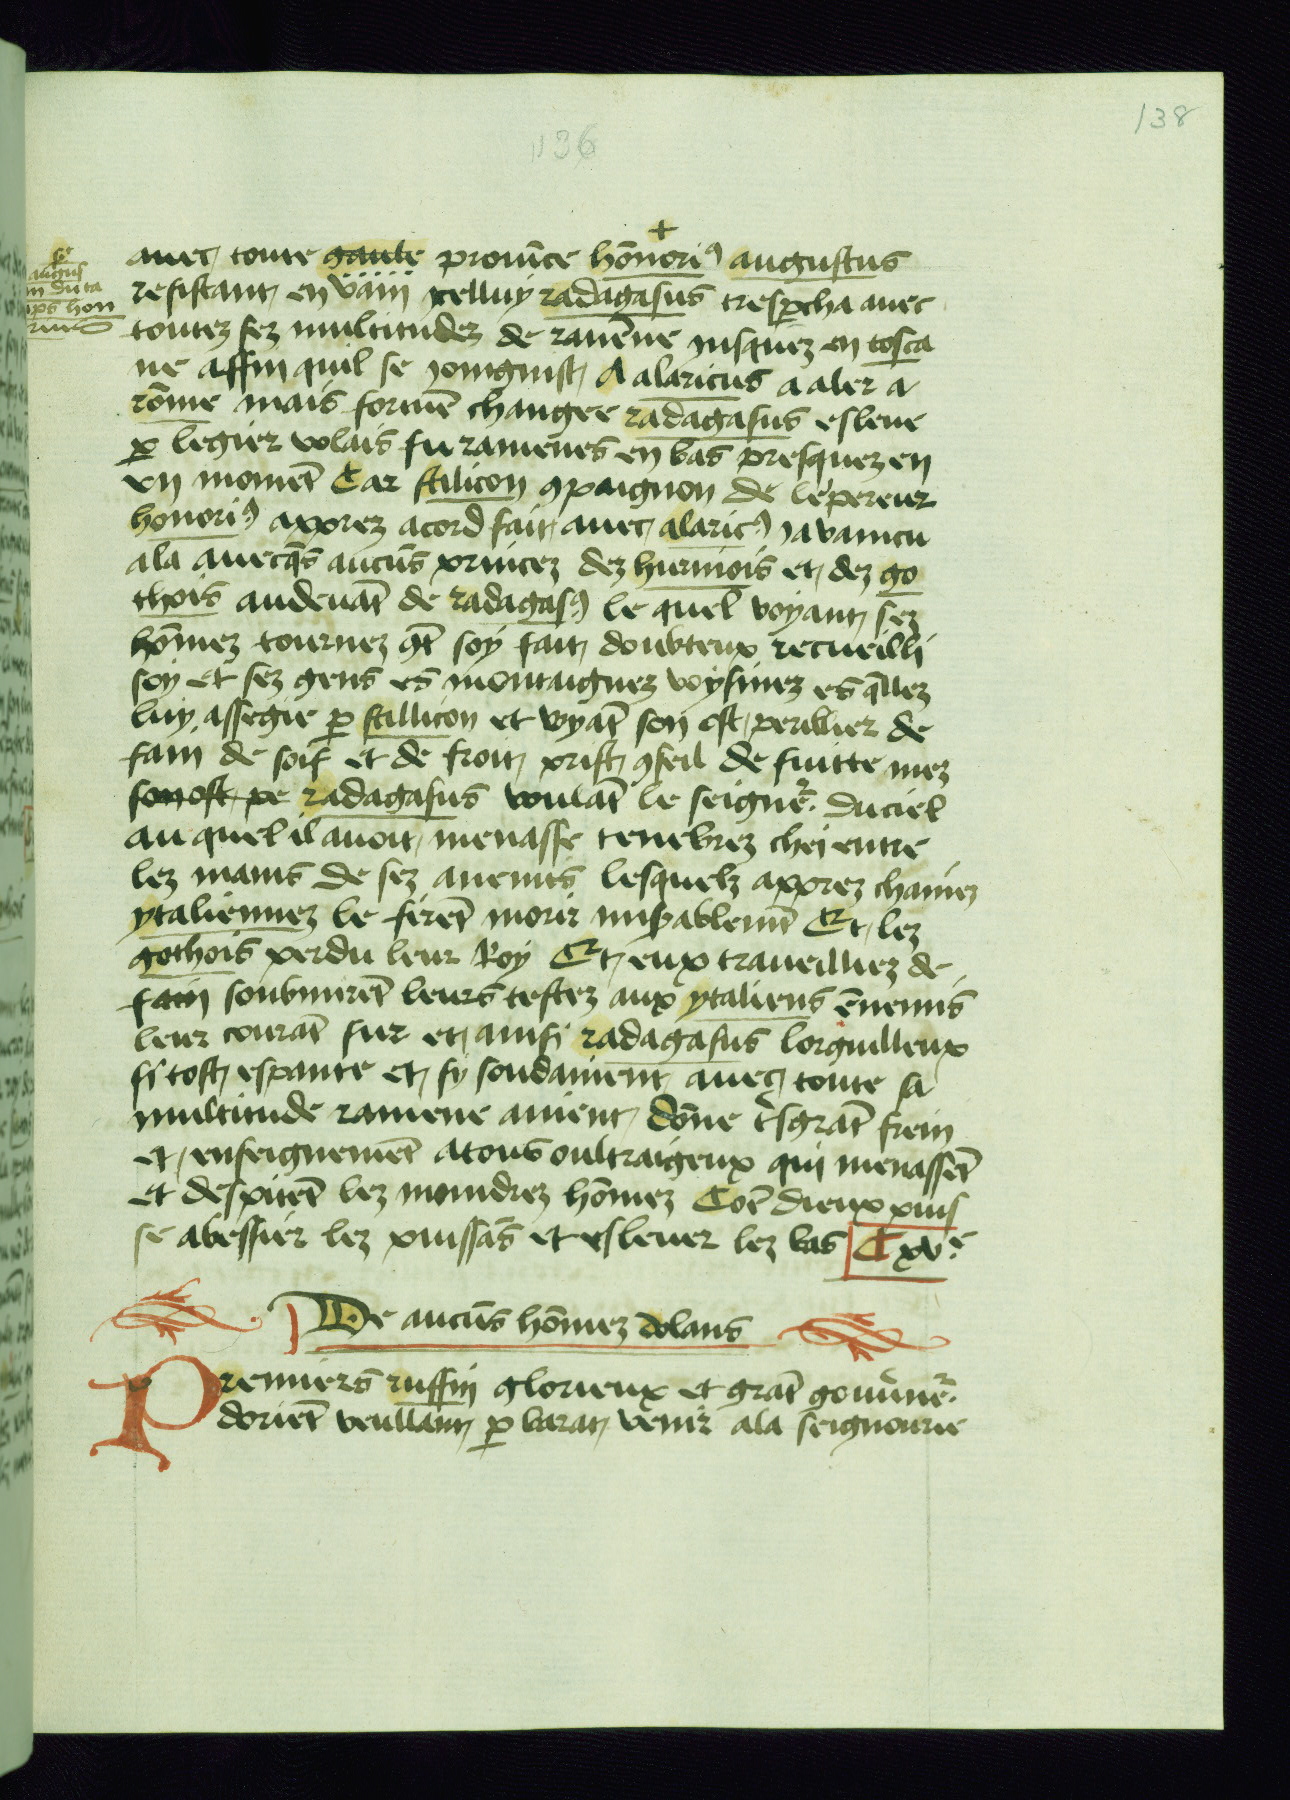 138
136
avec toute gaule prouīce hōnoriꝯ augustus
resistant en vain ycelluy radagasus trespcha avec
toutez sez multitudez de ravēne jusquez en tosca
ne affin quil se joingnist A alaricus a aler a
rōme mais fortunē changee radagasus esleve
ꝑ legier volais fu ramenes en bas presquez en
vn momēt Car stilicon ꝯpaignon de lēpereur
honoriꝯ apprez acord fait avec alaricꝯ
ala avecq̄s aucūs princez dez hūnois et dez go
thois audevāt de radagasꝯ le quel voyant sez
hōmez tournez ꝯt̄ soy fait doubteux recueilli
soy et sez gens es montaignez voysinez es q̄llez
luy assegie ꝑ stillicon et voyāt son ost perillier de
fain de soif et de froit prist ꝯseil de fuitte mez
son ost pe radagasus voulāt le seignē. du ciel
au quel il avoit menasse tenebrez chei entre
lez mains de sez anemis lesquelz apprez chainez
ytaliennez le firēt morir Et lez
gothois perdu leur Roy Et eux traveilliez de
fain soubmirēt leurs testez aux ytaliens ēnemis
leur courāt sur et ainsi radagasus lorguilleux
si tost espante et sy soudainent avec toute sa
multitude ramene a nient dōne t̄sgrāt frein
et enseignemēt a tous oultraigeux qui menassēt
et despitēt lez moindrez hōmez Coē dieux puis
se abessier lez puissās et eslever lez bas C xvᵉ
De aucūs hōmez dolans
Premiers ruffin glorieux et grāt gouv̄nē.
doriēt veullant ꝑ barat venir a la seignourie